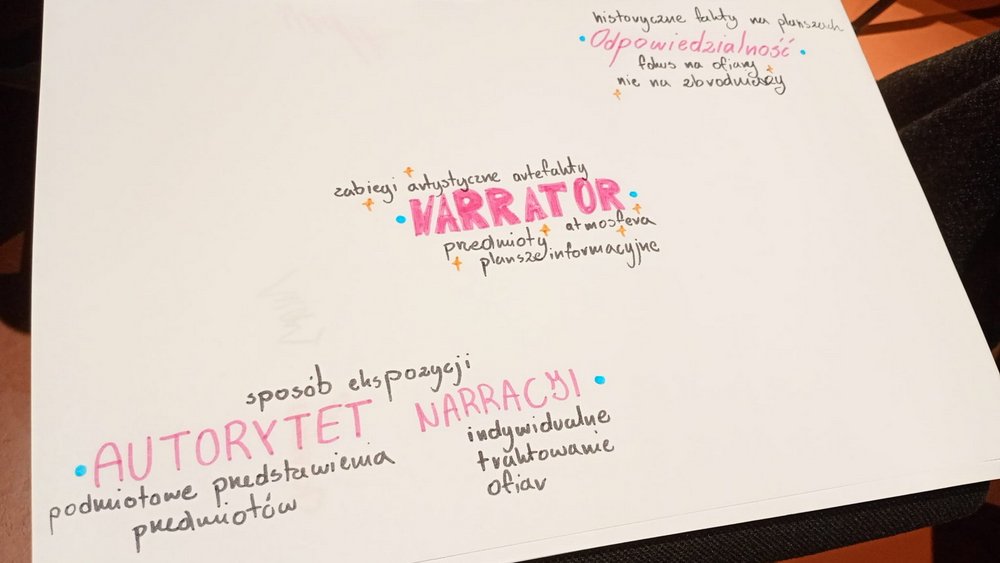 historyczne fakty na planszach
Odpowiedzialność
fokus na ofiary
nie na zbrodniarzy
zabiegi artystyczne artefakty
NARRATOR
przedmioty atmosfera
plansze informacyjne
sposób ekspozycji
AUTORYTET NARRACYJI
podmiotowe przedstawienia
przedmiotów
indywidualne
traktowanie
ofiar